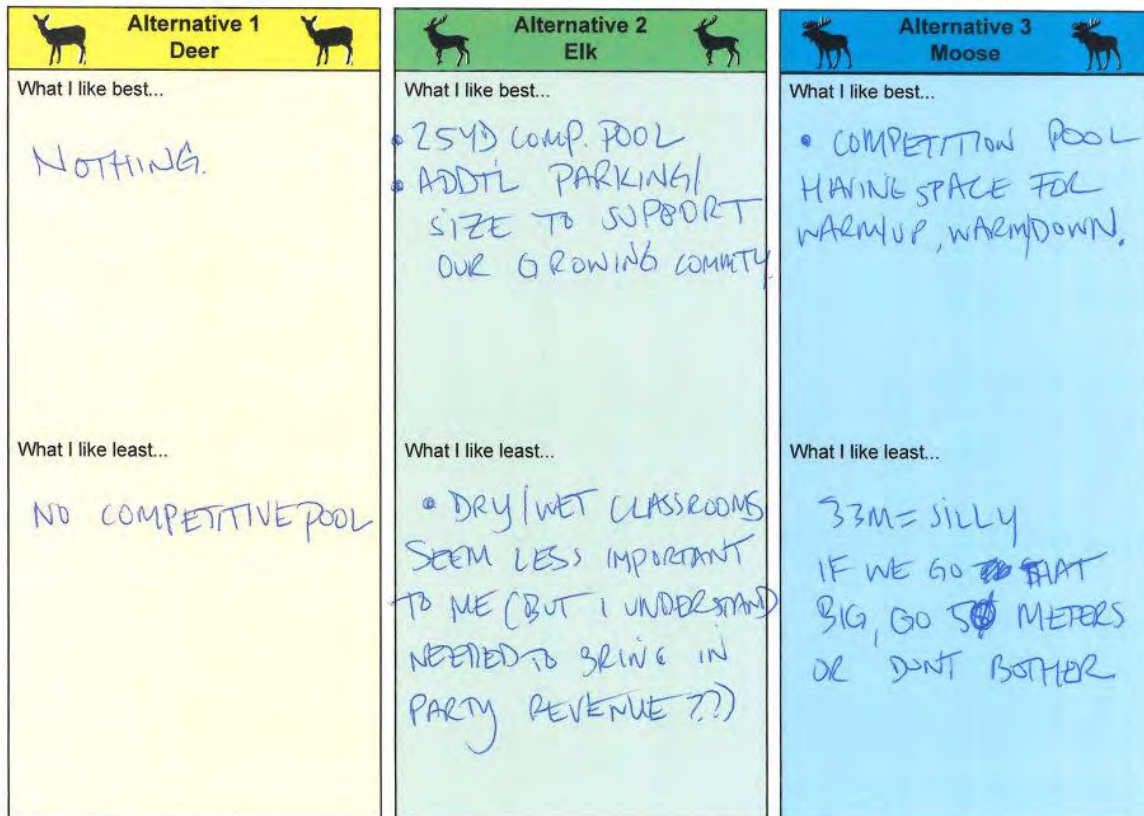 Alternative 1
Deer
What I like best...
NOTHING.
What I like least...
NO COMPETITIVE POOL
Alternative 2
Elk
What I like best...
• 25YD COMP. POOL
• ADDTL PARKING/
SIZE TO SUPPORT
OUR GROWING COMMTY
What I like least...
• DRY/WET CLASSROOMS
SEEM LESS IMPORTANT
TO ME (BUT I UNDERSTAND
NEEDED TO BRING IN
PARTY REVENUE ??)
Alternative 3
Moose
What I like best...
• COMPETITION POOL
HAVING SPACE FOR
WARM/UP, WARM/DOWN.
What I like least...
33M = SILLY
IF WE GO THAT
BIG, GO 50 METERS
OR DONT BOTHER